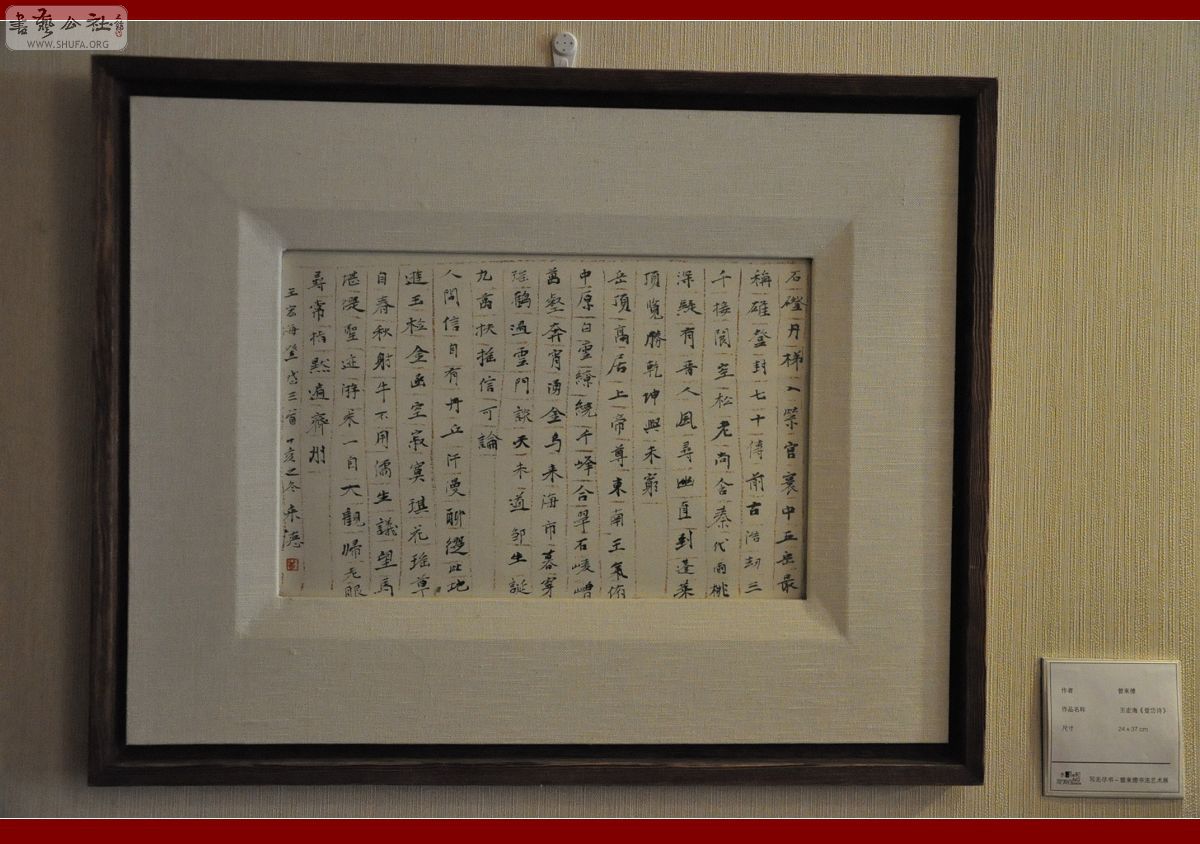 書藝公社
WWW.SHUFA.ORG
石磴丹梯入紫宮寰中五岳最
稱雄登封七十傳前古浩劫三
千接閬空松老尚含秦代雨桃
深疑有晋人風尋幽直到蓬萊
頂覽勝乾坤興未窮
岳頂高居上帝尊東南王氣俯
中原白雲繚繞千峰合翠石崚嶒
萬壑奔宵湧金烏来海市暮穿
瑶鶴過雲門談天未道邹生誕
九萬扶摇信可論
人間信自有丹丘汗漫聊此地
遊玉檢金函空寂寞琪花瑶草
自春秋射牛不用儒生議望馬
堪凝聖迹游来一自大觀歸无眼
尋常指點遍齊州
王宏海登岱三首 丁亥之冬来德
作者 曾来德
作品名称 王宏海《登岱诗》
尺寸 24 x 37 cm
写无尽书－曾来德书法艺术展